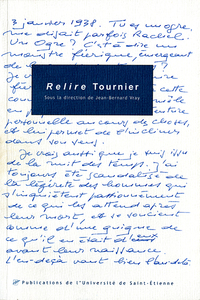 3 janvier 1938. Tu es un ogre,
me disait parfois Rachel.
Un Ogre ? C'est-à-dire un
monstre féerique, émergeant
Relire Tournier
Sous la direction de Jean-Bernard Vray
au cours des choses,
et lui permet de l'incliner
dans son sens.
Je crois aussi que je suis issu
de la nuit des temps. J'ai
toujours été scandalisé de
la légèreté des hommes qui
s'inquiètent passionnément
de ce qui les attend après
leur mort, et se soucient
comme d'une guigne de
ce qu'il en était d'eux
avant leur naissance.
L'en-deçà vaut bien l'au-delà
Publications de l'Université de Saint-Étienne